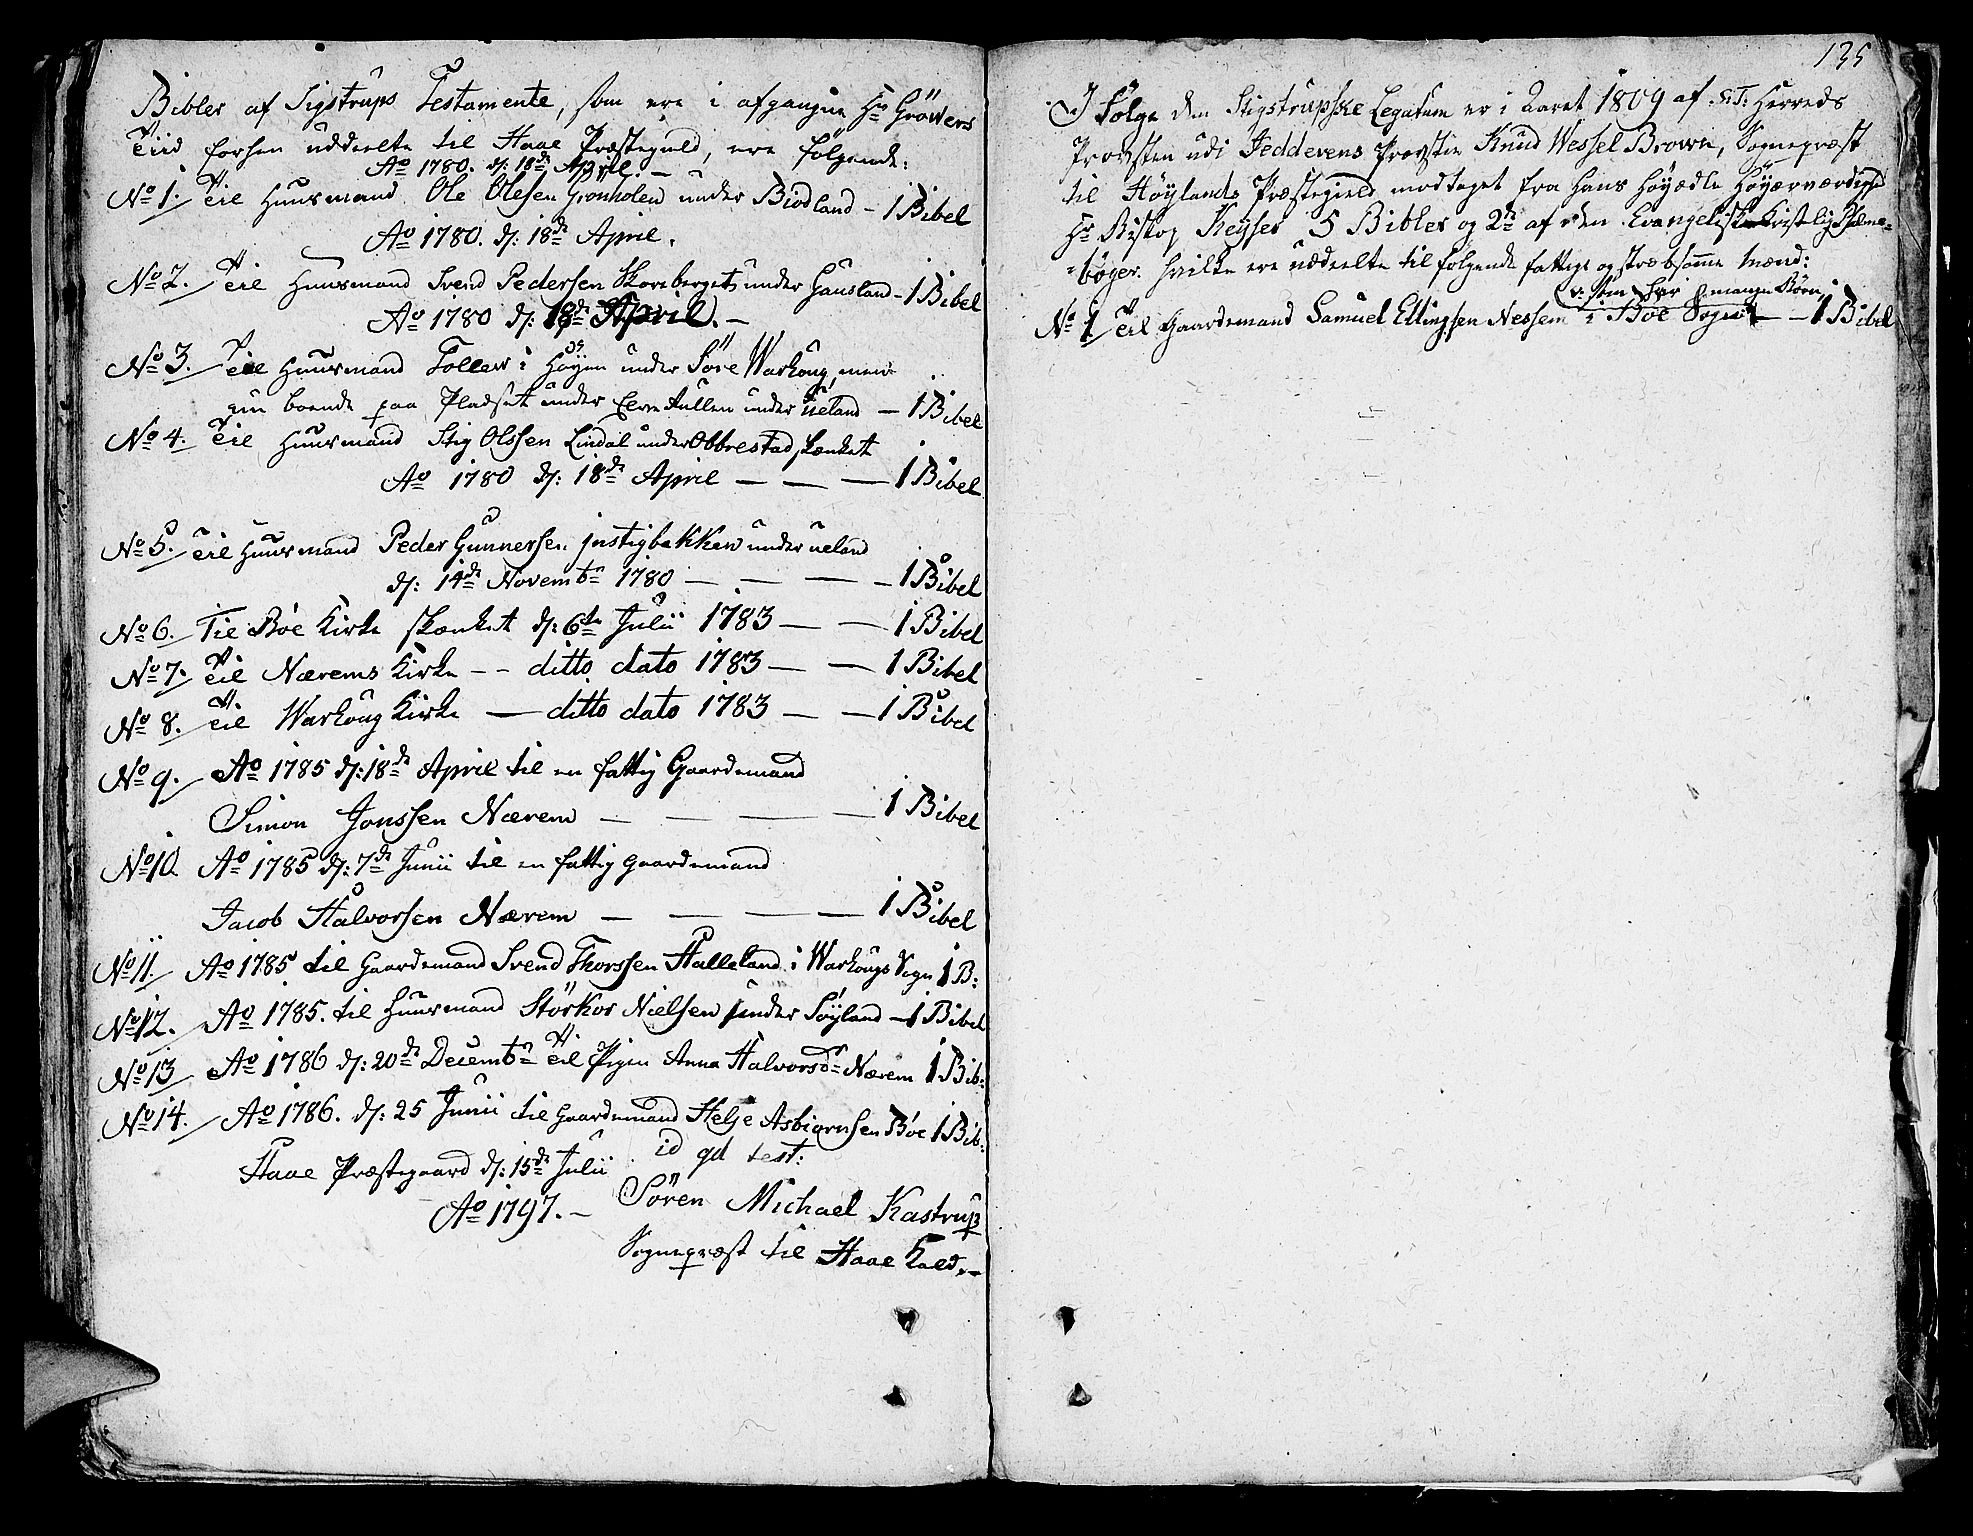 Bibler af Sigstrups Testamente, som ere i afgangne Hr Gröwers
Tiid forhen uddeelte til Haae Præstegield, ere følgende:
Ao 1780. d: 18de April. —
No 1. Til Huusmand Ole Olesen Grønholen under Biodland – 1 Bibel
Ao 1780. d: 18de April.
No 2. Til Huusmand Svend Pedersen Skorebergets under Hausland – 1 Bibel
Ao 1780 d: 18de April. —
No 3. Til Huusmand Tollew i Høyen under Søre Warhoug,
boende paa Pladset under under Ueland — 1 Bibel
No 4. Til Huusmand Stig Olssen Lindal under Obbrestad, skænket
Ao 1780 d: 18de April — — — 1 Bibel
No 5. Til Huusmand Peder Gunnersen justigbakken under Ueland
d: 14de Novembr 1780 — — — – 1 Bibel
No 6. Til Böe Kirke skænket d: 6te Julii 1783 — — 1 Bibel
No 7. Til Nærems Kirke – – ditto dato 1783 — — 1 Bibel
No 8. Til Warhoug Kirke — ditto dato 1783 — — 1 Bibel
No 9. Ao 1785 d: 18de April til en fattig Gaardemand
Simon Jonssen Nærem — — — — 1 Bibel
No 10. Ao 1785 d: 7de Junii til en fattig gaardemand
Jacob Halvorsen Nærem — — — — 1 Bibel
No 11. Ao 1785 til Gaardemand Svend Thorssen Halleland i Warhougs Sogn 1 B:
No 12. Ao 1785. til Huusmand Störkor Nielsen under Söyland — 1 Bibel
No 13 Ao 1786 d: 20de Decembr til Pigen Anna Halvorsdr Nærem 1 Bib:
No 14. Ao 1786. d: 25 Junii til Gaardemand Helje Asbiørnsen Böe 1 Bib:
Haae Præstegaard d: 15de Julii id qd test:
Ao 1797. – Sören Michael Kastrup
Sognepræst til Haae Kald. –
135
I Følge den Stigstrupske Legatum er i Aaret 1809 af S:T: Herreds
Provsten udi Jedderens Provstie Knud Wessel Brown, Sognepræst
til Høylands Præstegield modtaget fra Hans Høyædle Høyærværdighed
Hr Biskop Keyser 5 Bibler og 2de af den Evangelisk Kristelig Psalme-
-bøger. hvilke ere uddeelte til følgende fattige og stræbsomme Mænd:
v: som har mange Børn
No 1 Til Gaardemand Samuel Ellingsen Nessem i Böe Sogn – – 1 Bibel